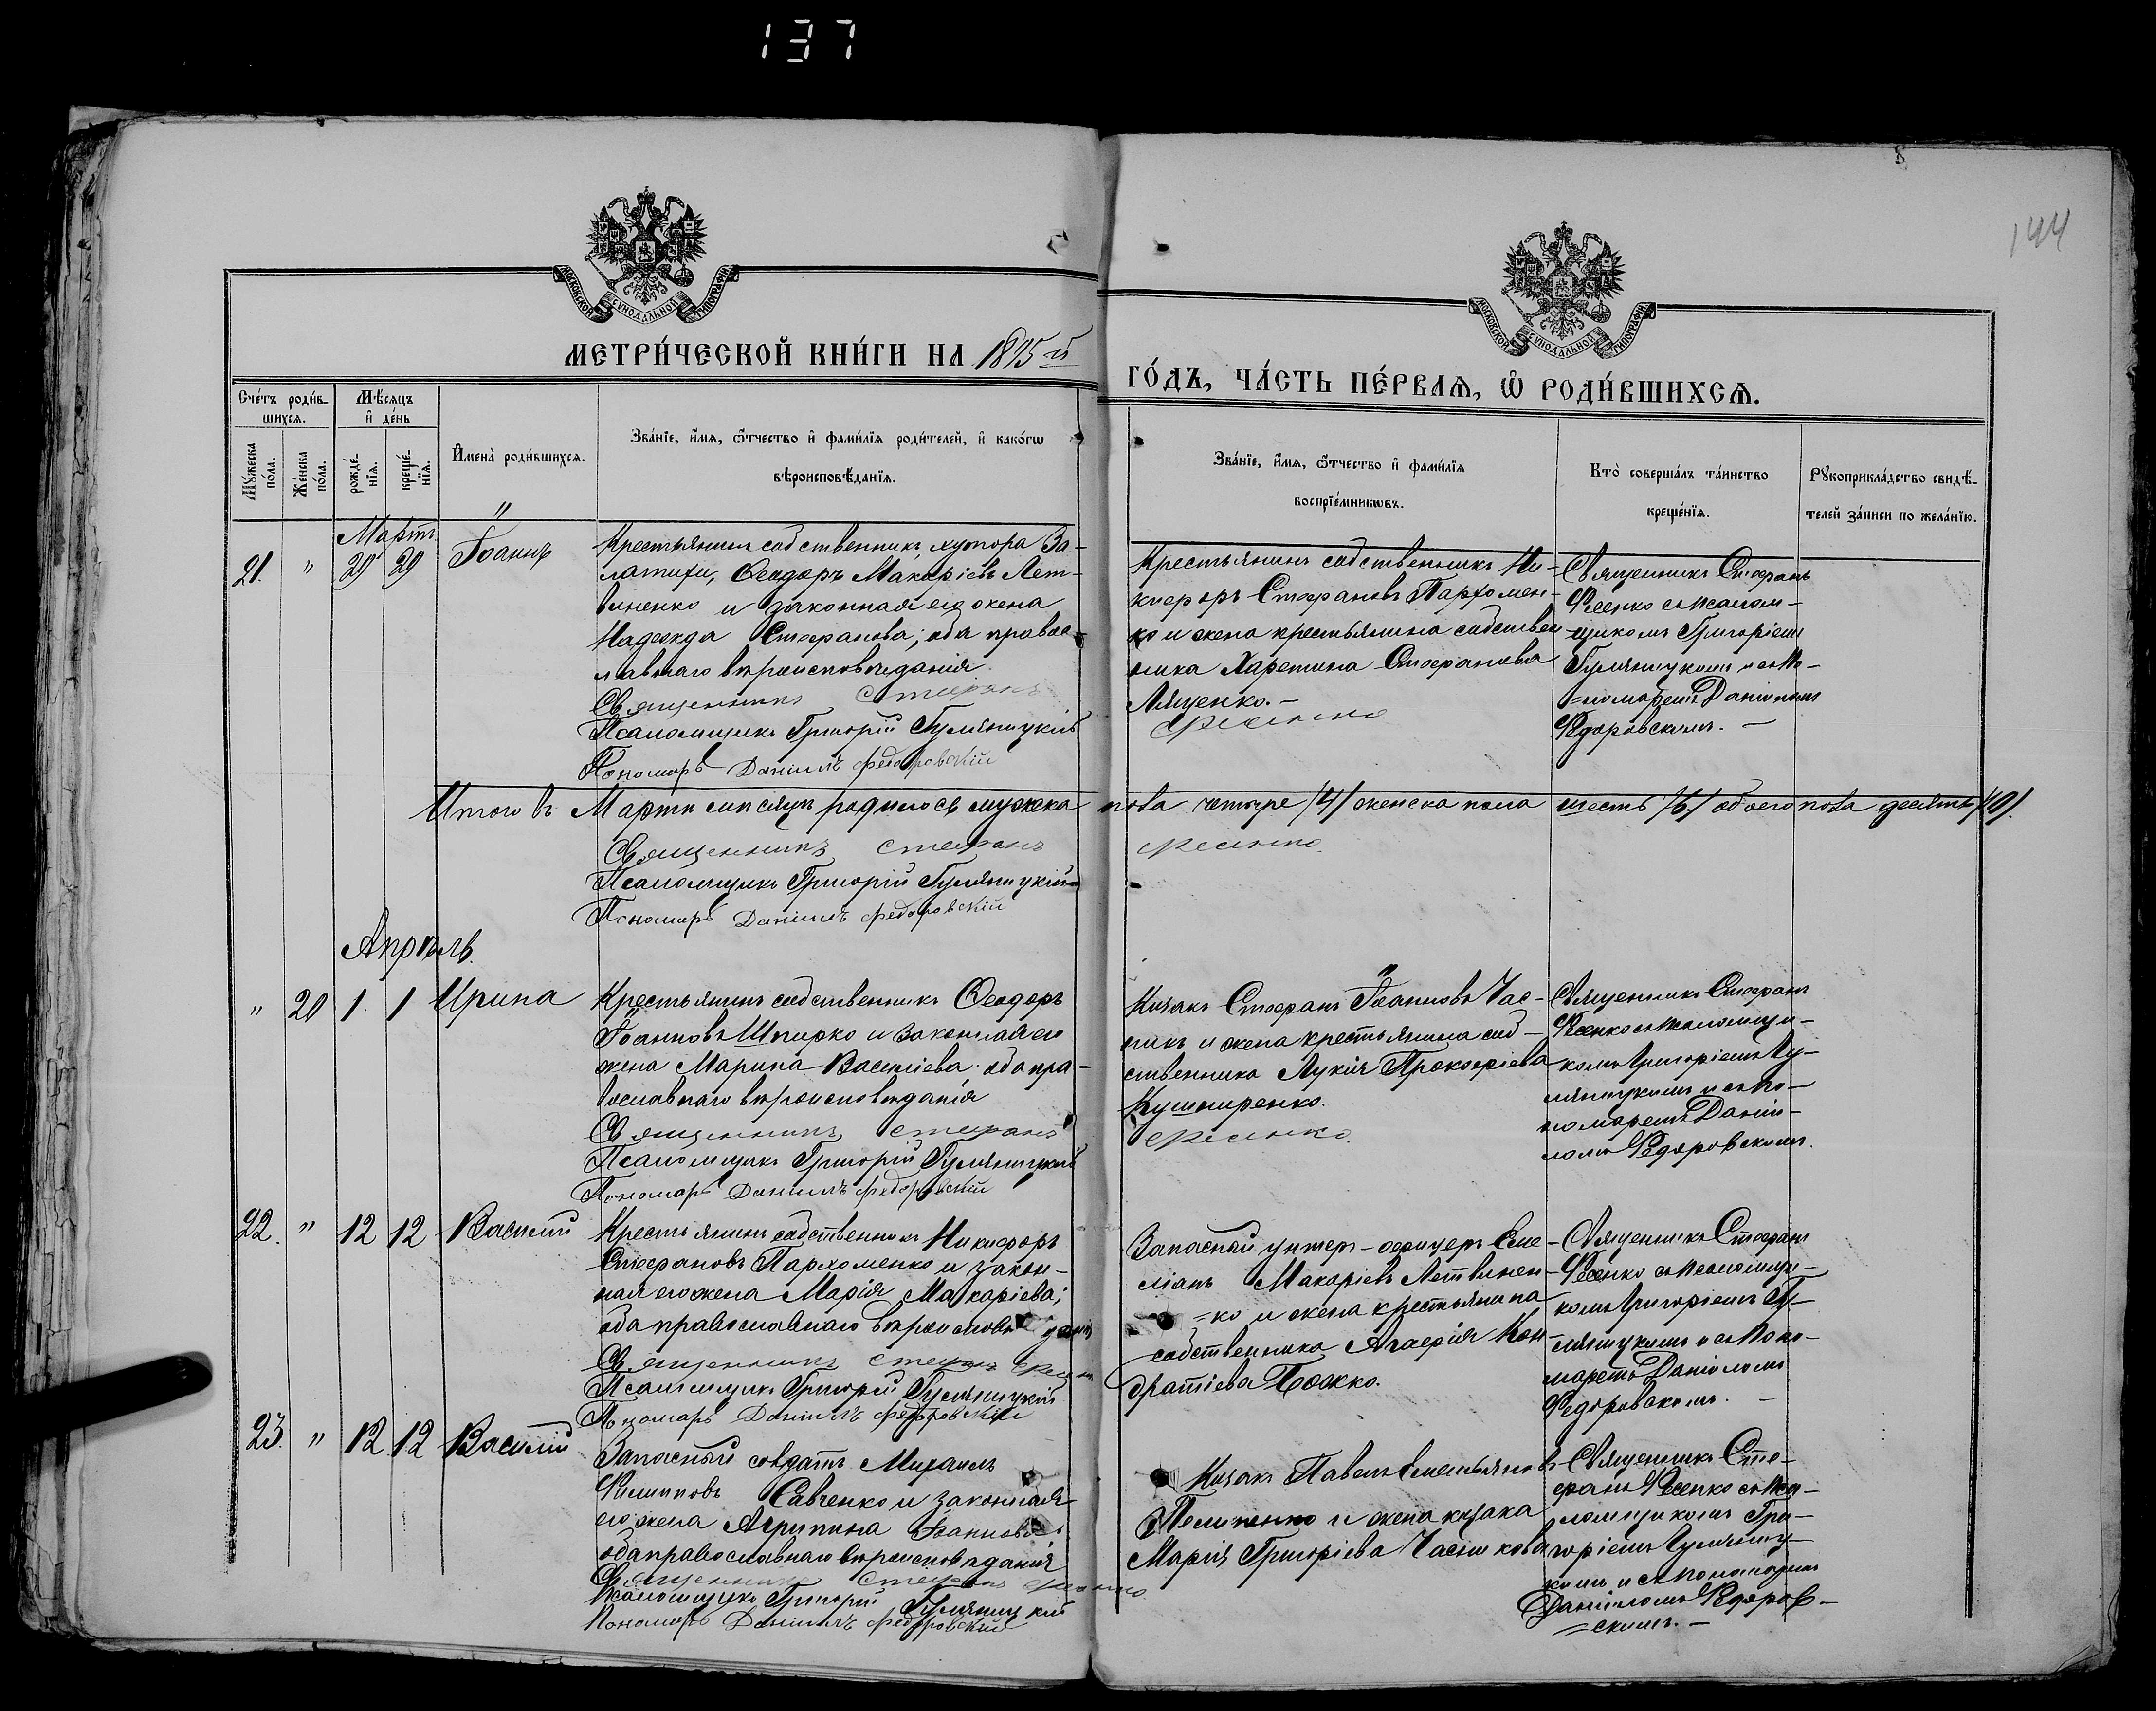 137
144
МОСКОВСКОЙ СѴНОДАЛЬНОЙ ТИПОГРАФІИ
МОСКОВСКОЙ СѴНОДАЛЬНОЙ ТИПОГРАФІИ
МЕТРИ́ЧЕСКОЙ КНИ́ГИ НА 1895 й
ГО́ДЪ, ЧА́СТЬ ПЕ́РВАѦ, Ѡ҆ РОДИ́ВШИХСѦ.
Сче́тъ роди́в-
шихсѧ.
Мꙋ́жеска по́ла.
Же́нска по́ла.
Мѣ́сѧцъ
и҆ де́нь
рожде́-
нїѧ.
креще́-
нїѧ.
И҆мена̀ роди́вшихсѧ.
Зва́нїе, и҆́мѧ, ѻ҆́тчество и҆ фами́лїѧ роди́телей, и҆ како́гѡ
вѣроисповѣ́данїѧ.
Зва́нїе, и҆́мѧ, ѻ҆́тчество и҆ фами́лїѧ
воспрїе́мникѡвъ.
Кто̀ соверша́лъ та́инство
креще́нїѧ.
Рꙋкоприкла́дство свидѣ́-
телей за́писи по жела́нїю.
Мартъ
21. " 29 29 Іоаннъ
Крестьянинъ собственникъ хутора За-
латихи, Ѳеодоръ Макаріевъ Лет-
виненко и законная его жена
Надежда Стефанова; оба правос-
лавнаго вѣроисповѣданія
Священникъ Стефанъ
Псаломщикъ Григорій Гуляницкій
Пономарь Даніилъ Федоровскій
Крестьянинъ собственникъ Ни-
кифоръ Стефановъ Пархомен-
ко и жена крестьянина собствен
ника Харетина Стефанова
Лященко.-
Фесенко
Священникъ Стефанъ
Фесенко съ псалом-
щикомъ Григоріемъ
Гуляницкимъ и съ По-
=номаремъ Даніиломъ
Федоровскимъ. -
Итого въ Мартѣ мѣсяцѣ родилось мужска пола четыре /4/ женска пола шесть /6/ обоего пола десять /10/.
Священникъ Стефанъ Фесенко
Псаломщикъ Григорій Гуляницкій
Пономарь Даніилъ Федоровскій
Апрѣль.
" 20 1. 1 Ирина
Крестьянинъ собственникъ Ѳеодоръ
Іоанновъ Шпирко и законная его
жена Марина Василіева; оба пра-
вославнаго вѣроисповѣданія
Священникъ Стефанъ
Псаломщикъ Григорій Гуляницкій
Пономарь Даніилъ Федоровскій
Козакъ Стефанъ Іоанновъ Час-
никъ и жена крестьянина соб-
ственника Лукія Прокофіева
Кушниренко.
Фесенко.
Священникъ Стефанъ
Фесенко съ псаломщи-
комъ Григоріемъ Гу-
ляницкимъ и съ По-
номаремъ Даніи-
ломъ Федоровскимъ.
22. " 12 12 Василій
Крестьянинъ собственникъ Никифоръ
Стефановъ Пархоменко и закон-
ная его жена Марія Макаріева;
оба православнаго вѣроисповѣданія
Священникъ Стефанъ Фесенко
Псаломщикъ Григорій Гуляницкій
Пономарь Даніилъ Федоровскій
Запасный унтеръ-офицеръ Еме-
ліанъ Макаріевъ Летвинен-
=ко и жена крестьянина
собственника Агафія Кон-
дратіева Божко.
Священникъ Стефанъ
Фесенко съ псаломщи-
комъ Григоріемъ Гу-
ляницкимъ и съ Поно-
маремъ Даніиломъ
Федоровскимъ. -
23. " 12 12 Василій
Запасный солдатъ Михаилъ
Филиповъ Савченко и законная
его жена Агрипина Іоаннова;
оба православнаго вѣроисповѣданія
Священникъ Стефанъ Фесенко
Псаломщикъ Григорій Гуляницкій
Пономарь Даніилъ Федоровскій
Козакъ Павелъ Емельяновъ
и жена козака
Марія Григоріева
Священникъ Сте-
фанъ Фесенко съ пса-
ломщикомъ Гри-
горіемъ Гуляниц-
кимъ и съ пономаремъ
Даніиломъ Федоров-
=скимъ. -